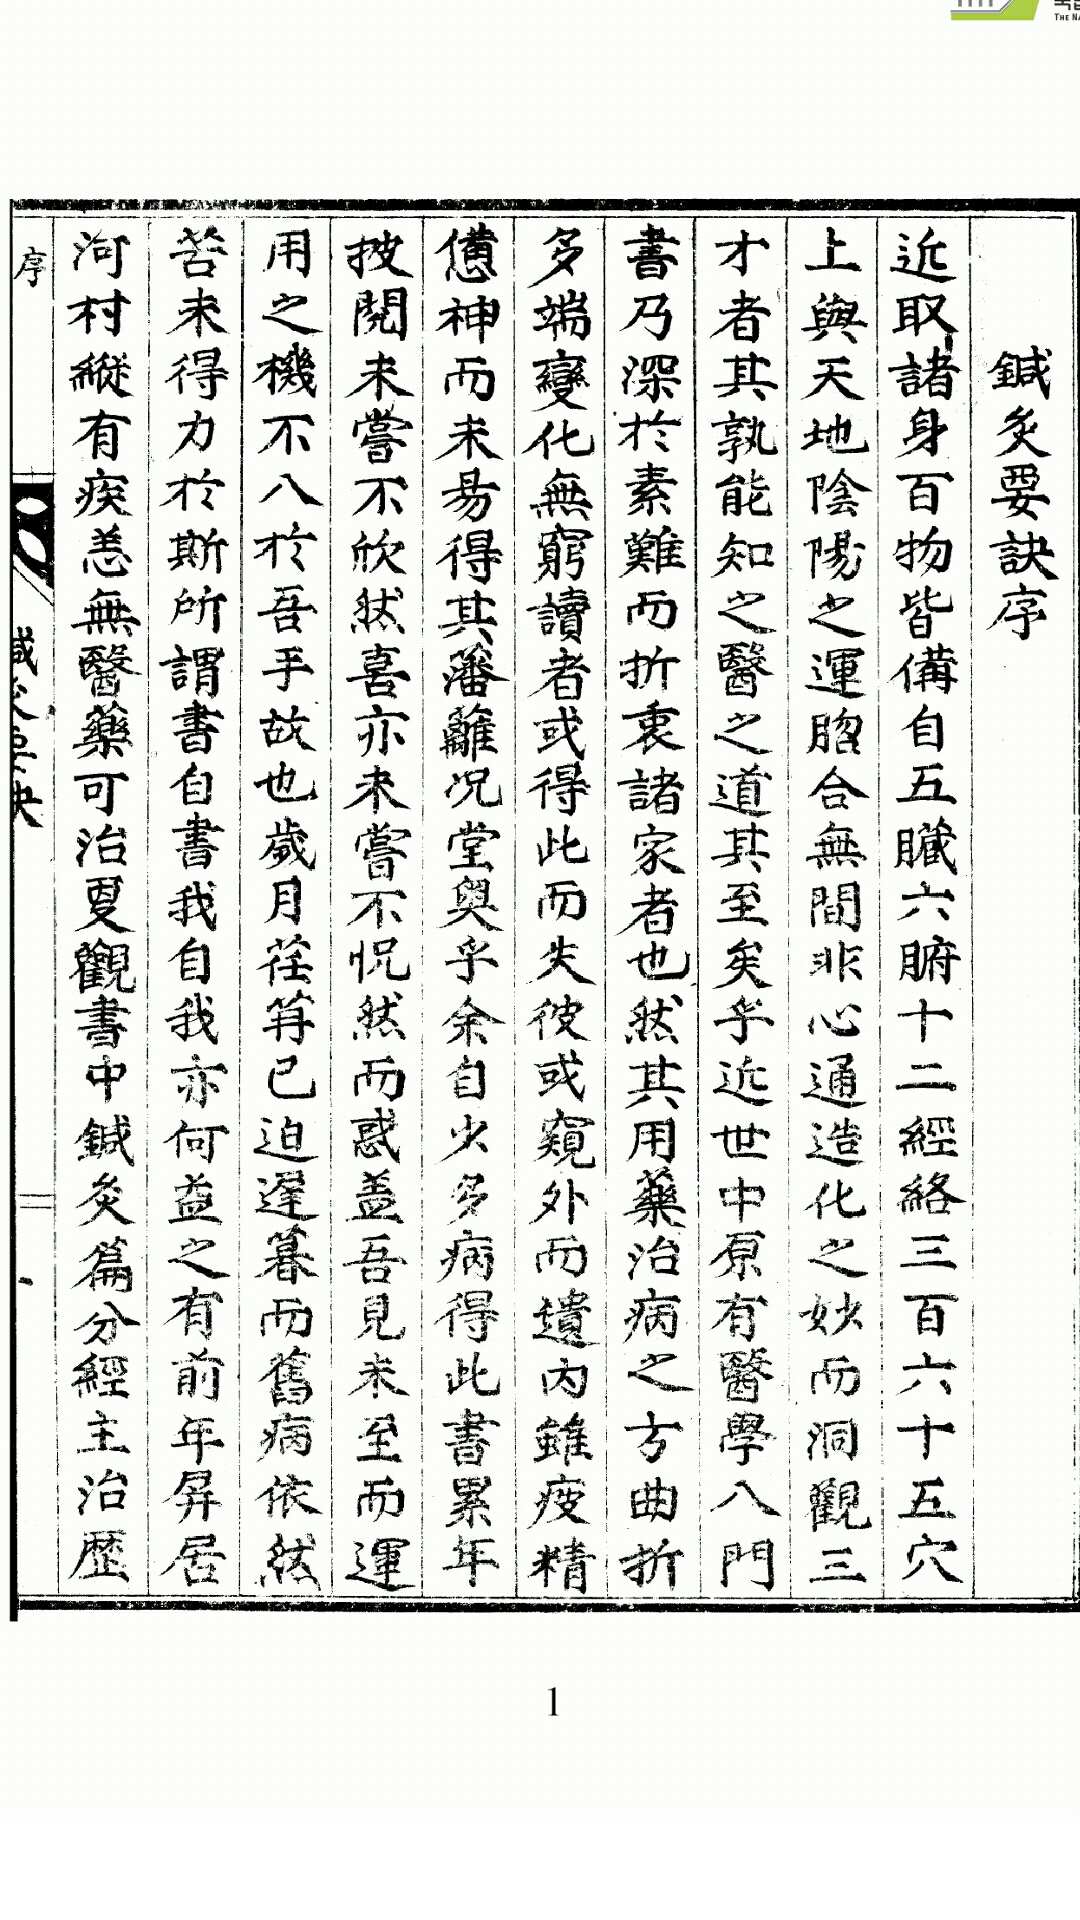 鍼灸要訣序
近取諸身百物皆備自五臟六腑十二經絡三百六十五穴
上與天地陰陽之運脗合無間非心通造化之妙而洞觀三
才者其孰能知之醫之道其至矣乎近世中原有醫學八門
書乃深於素難而折衷諸家者也然其用藥治病之方曲折
多端變化無窮讀者或得此而失彼或窺外而遺內雖疲精
憊神而未易得其藩籬况堂奧乎余自少多病得此書累年
披閱未嘗不欣然喜亦未嘗不怳然而惑盖吾見未至而運
用之機不八於吾手故也歲月荏苒已迫遲暮而舊病依然
苦未得力於斯所謂書自書我自我亦何益之有前年屏居
河村縱有疾恙無醫藥可治夏觀書中鍼灸篇分經主治歷
序
鍼灸要訣
THE NA
1